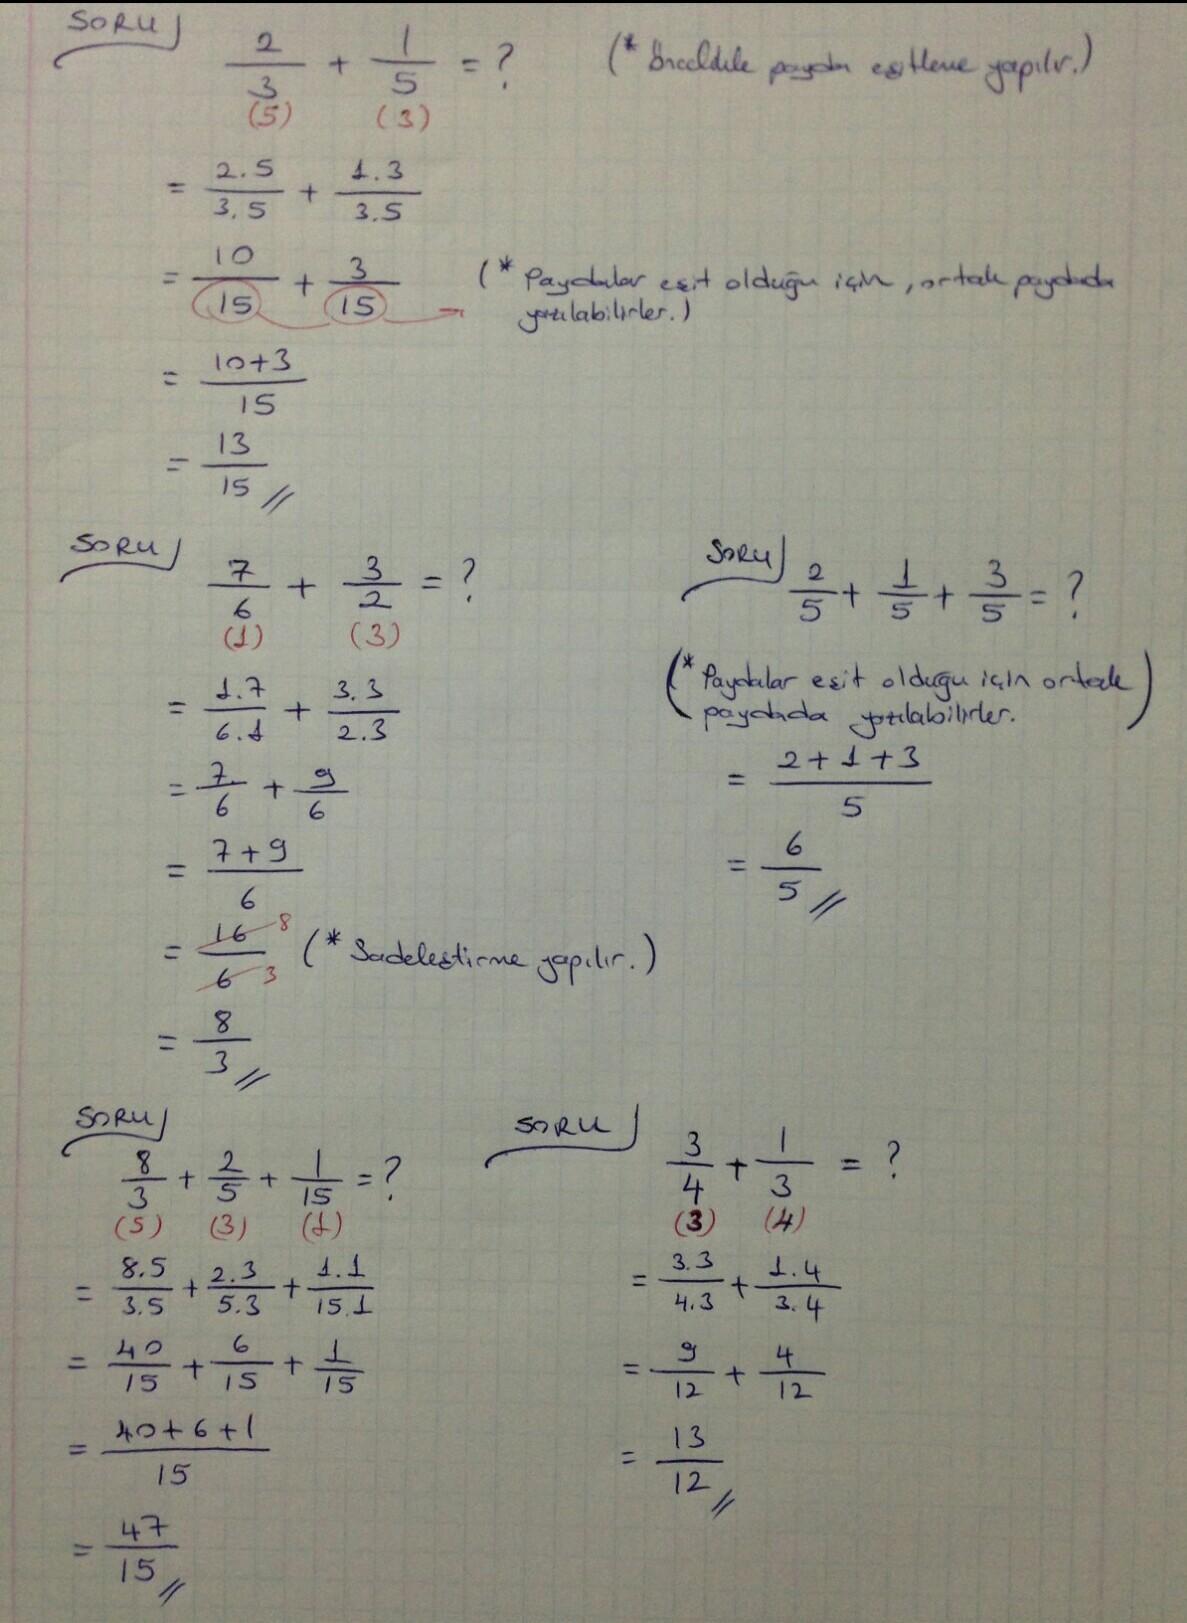 SORU
2/3 + 1/5 = ? (* Öncelikle payda eşitleme yapılır.)
(5) (3)
= 2.5/3.5 + 1.3/3.5
= 10/15 + 3/15 (* Paydalar eşit olduğu için, ortak paydada
yazılabilirler.)
= 10+3/15
= 13/15 //
SORU
7/6 + 3/2 = ?
(1) (3)
= 1.7/6.1 + 3.3/2.3
= 7/6 + 9/6
= 7+9/6
= 16/6 8 3 (* Sadeleştirme yapılır.)
= 8/3 //
SORU
2/5 + 1/5 + 3/5 = ?
(* Paydalar eşit olduğu için ortak
paydada yazılabilirler.)
= 2+1+3/5
= 6/5 //
SORU
8/3 + 2/5 + 1/15 = ?
(5) (3) (1)
= 8.5/3.5 + 2.3/5.3 + 1.1/15.1
= 40/15 + 6/15 + 1/15
= 40+6+1/15
= 47/15 //
SORU
3/4 + 1/3 = ?
(3) (4)
= 3.3/4.3 + 1.4/3.4
= 9/12 + 4/12
= 13/12 //